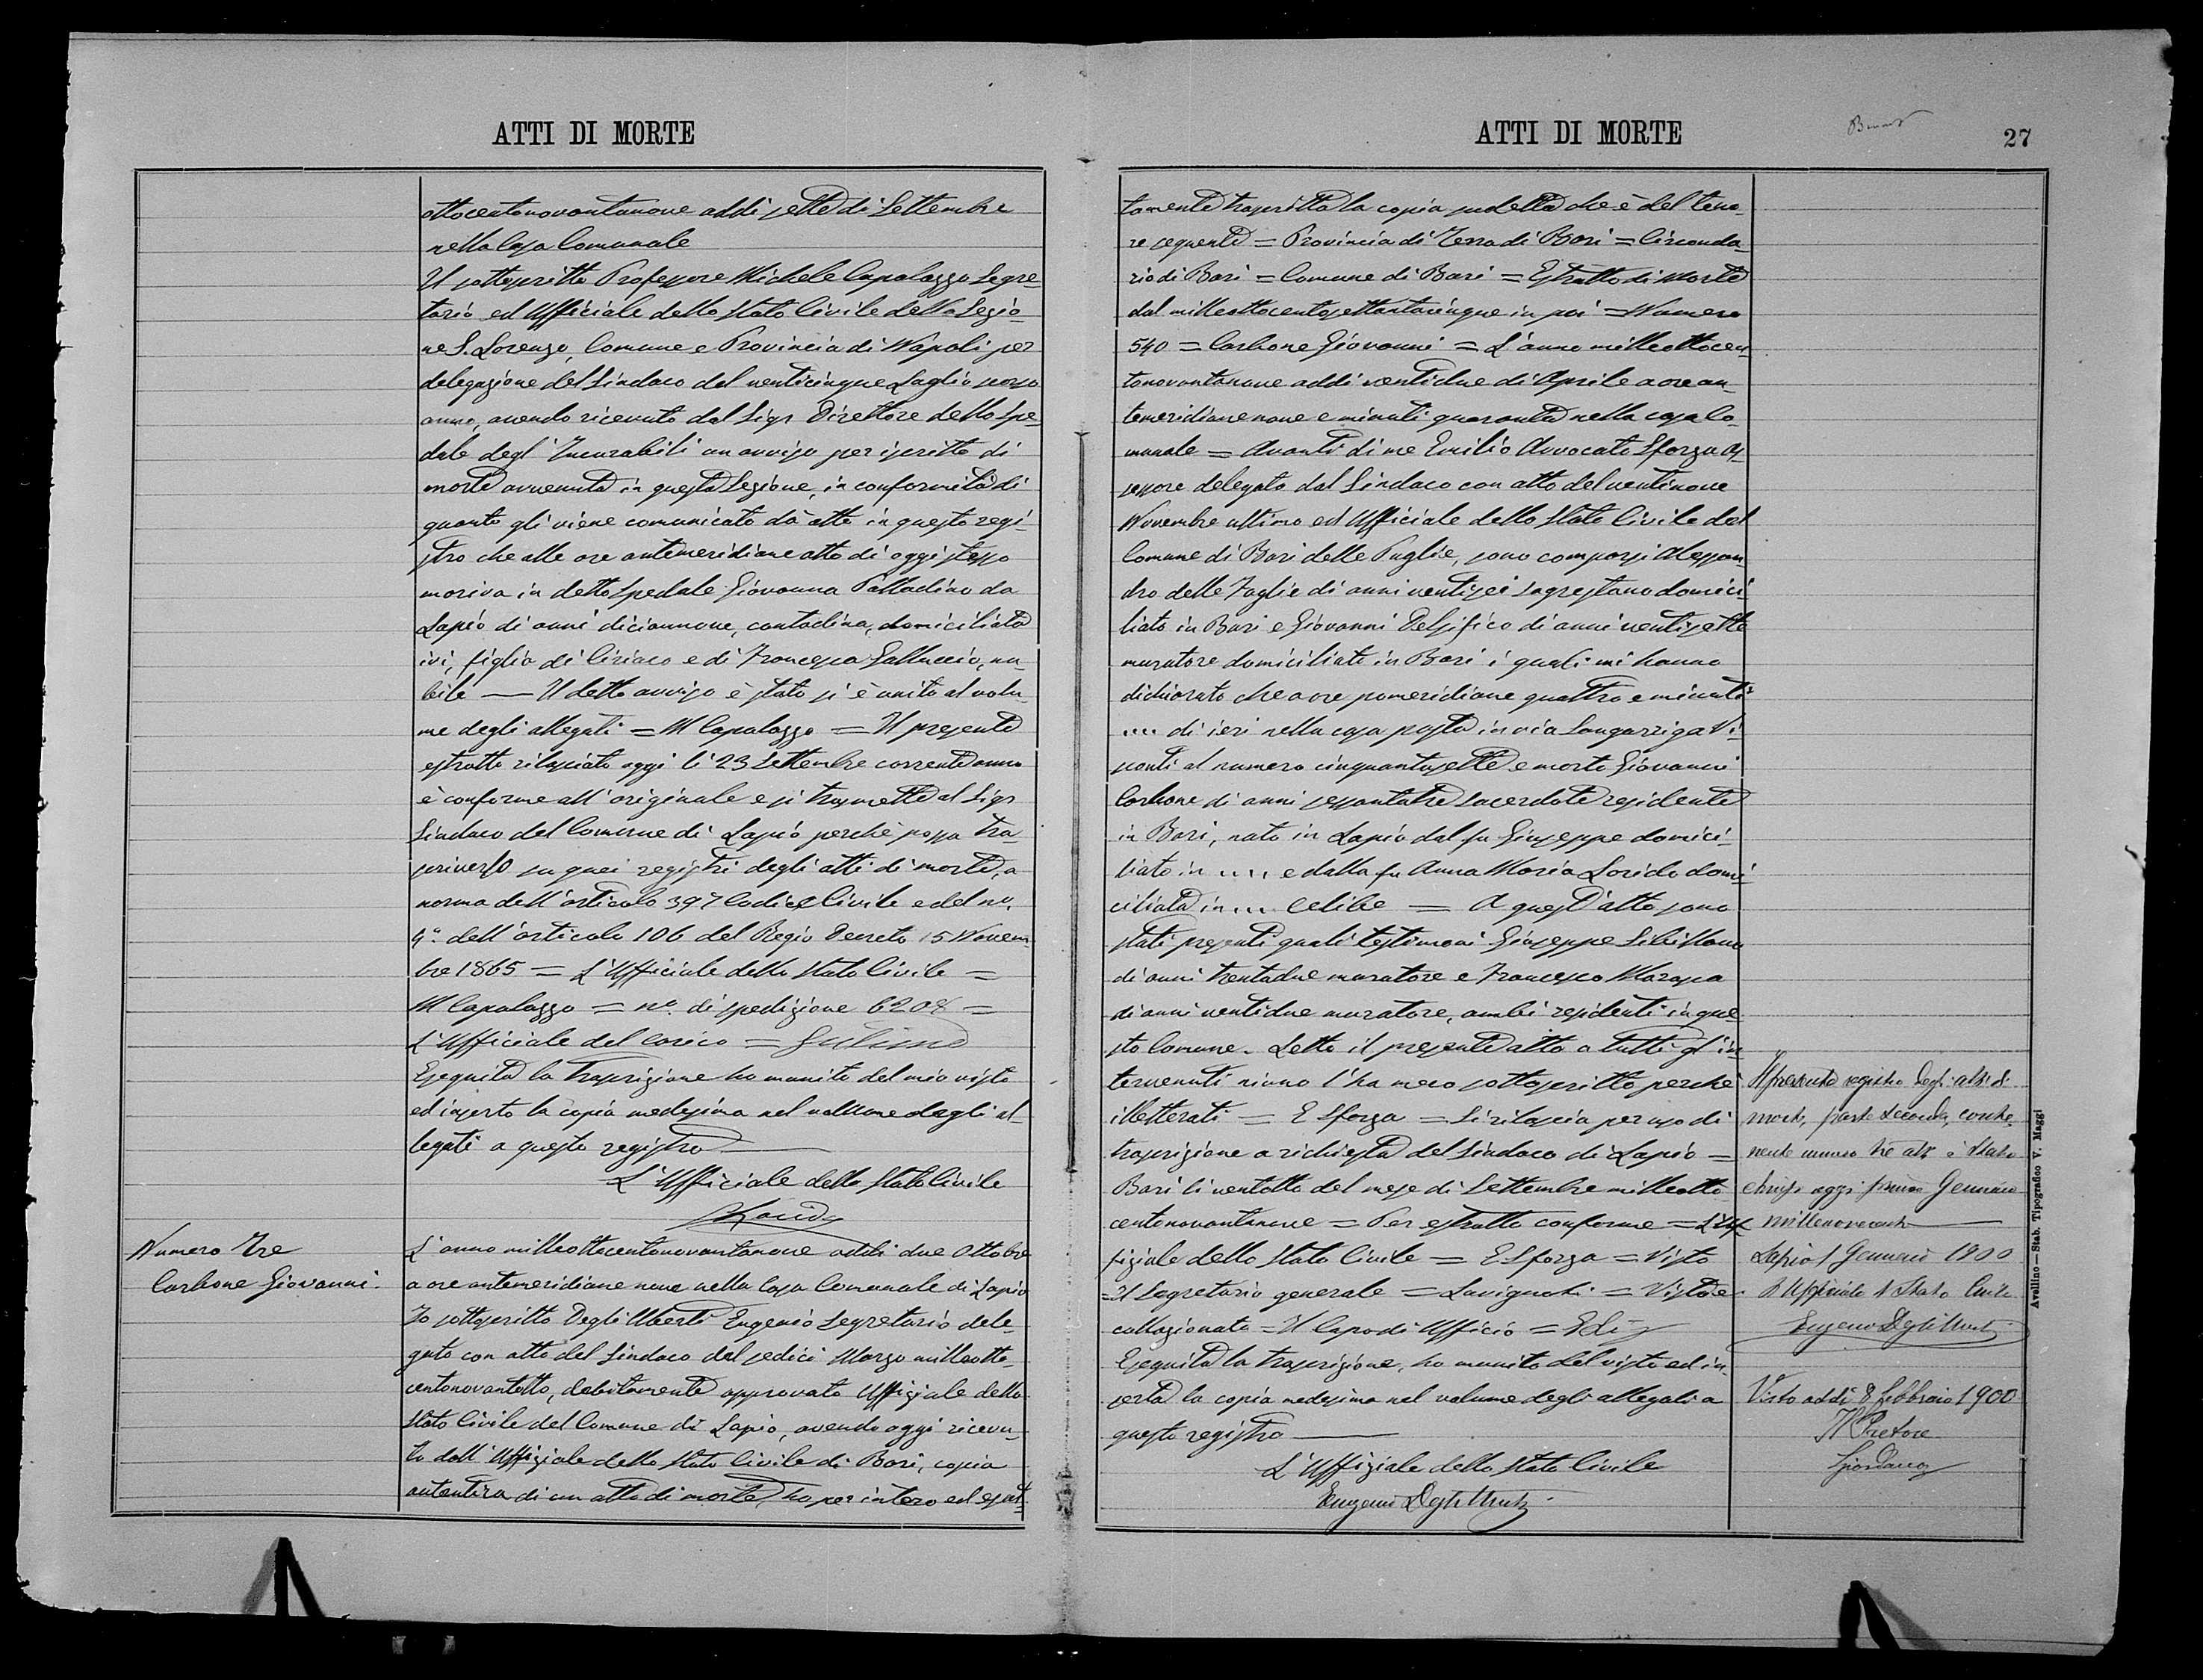 ATTI DI MORTE
ottocentonovantanove addì sette di Settembre
nella Casa Comunale
Il sottoscritto Professore Michele Capalozzo Segre-
tario ed Ufficiale dello Stato Civile della Sezio-
ne S. Lorenzo, Comune e Provincia di Napoli per
delegazione del Sindaco del venticinque Luglio scorso
anno, avendo ricevuto dal Sigr Direttore dello Spe-
dale degl'Incurabili un avviso per iscritto di
morte avvenuta in questa Sezione, in conformità di
quanto gli viene comunicato dà atto in questo regi-
stro che alle ore antimeridiane otto di oggi stesso
moriva in detto Spedale Giovanna Palladino da
Lapio di anni diciannove, contadina, domiciliata
ivi, figlia di Ciriaco e di Francesca Galluccio, nu-
bile — Il detto avviso è stato si è unito al volu-
me degli allegati = M Capalozzo = Il presente
estratto rilasciato oggi li 23 Settembre corrente anno
è conforme all'originale e si trasmette al Sigr
Sindaco del Comune di Lapio perchè possa tra-
scriverlo su quei registri degli atti di morte, a
norma dell'articolo 397 Codice Civile e del no.
4° dell'articolo 106 del Regio Decreto 15 Novem-
bre 1865 = L'Ufficiale dello Stato Civile =
M Capalozzo = no. di spedizione 6208 =
L'Ufficiale del carico =
Eseguita la trascrizione ho munito del mio visto
ed inserto la copia medesima nel volume degli al-
legati a questo registro —
L'Ufficiale dello Stato Civile
Numero Tre
Carbone Giovanni.
L'anno milleottocentonovantanove addì due Ottobre
a ore antemeridiane nove nella Casa Comunale di Lapio
Io sottoscritto Degli Uberti Eugenio Segretario dele-
gato con atto del Sindaco del sedici Marzo milleotto-
centonovantotto, debitamente approvato Uffiziale dello
Stato Civile del Comune di Lapio, avendo oggi ricevu-
to dall'Uffiziale dello Stato Civile di Bari, copia
autentica di un atto di morte, ho per intero ed esat-
ATTI DI MORTE
27
tamente trascritta la copia sudetta che è del teno-
re seguente = Provincia di Terra di Bari = Circonda-
rio di Bari = Comune di Bari = Estratto di Morte
dal milleottocentosettantacinque in poi = Numero
540 = Carbone Giovanni = L'anno milleottocen-
tonovantanove addì ventidue di Aprile a ore an-
temeridiane nove e minuti quaranta nella casa Co-
munale = Avanti di me Emilio Avvocato Sforza As-
sessore delegato dal Sindaco con atto del ventinove
Novembre ultimo ed Ufficiale dello Stato Civile del
Comune di Bari delle Puglie, sono comparsi Alessan-
dro delle Foglie di anni ventisei sagrestano domici-
liato in Bari e Giovanni Delzifico di anni ventisette
muratore domiciliato in Bari i quali mi hanno
dichiarato che a ore pomeridiane quattro e minuti
.... di ieri nella casa posta in via Sangarriga Vi-
sconti al numero cinquantasette è morto Giovanni
Carbone di anni sessantatre sacerdote residente
in Bari, nato in Lapio dal fu Giuseppe domici-
liato in .... e dalla fu Anna Maria Lorido domi-
ciliata in .... celibe = A quest'atto sono
stati presenti quali testimoni Giuseppe Sibillano
di anni trentadue muratore e Francesco Marasca
di anni ventidue muratore, ambi residenti in que-
sto Comune. Letto il presente atto a tutti gl'in-
tervenuti niuno l'ha meco sottoscritto perchè
illetterati = E Sforza = Si rilascia per uso di
trascrizione a richiesta del Sindaco di Lapio =
Bari li ventotto del mese di Settembre milleotto-
centonovantanove = Per estratto conforme = L'Uf-
fiziale dello Stato Civile = E Sforza = Visto
= Il Segretario generale = = Visto e
collazionato = Il Capo di Ufficio =
Eseguita la trascrizione, ho munito del visto ed in-
serta la copia medesima nel volume degli allegati a
questo registro —
L'Uffiziale dello Stato Civile
Eugenio Degli Uberti
Il presente registro degli atti di
morte, parte seconda, conte-
nente numero tre atti è stato
chiuso oggi primo Gennaio
millenovecento —
Lapio 1 Gennaio 1900
L'Uffiziale d Stato Civile
Eugenio Degli Uberti
Visto addì 8 Febbraio 1900
Il Pretore
Giordano
Avellino — Stab. Tipografico V. Maggi